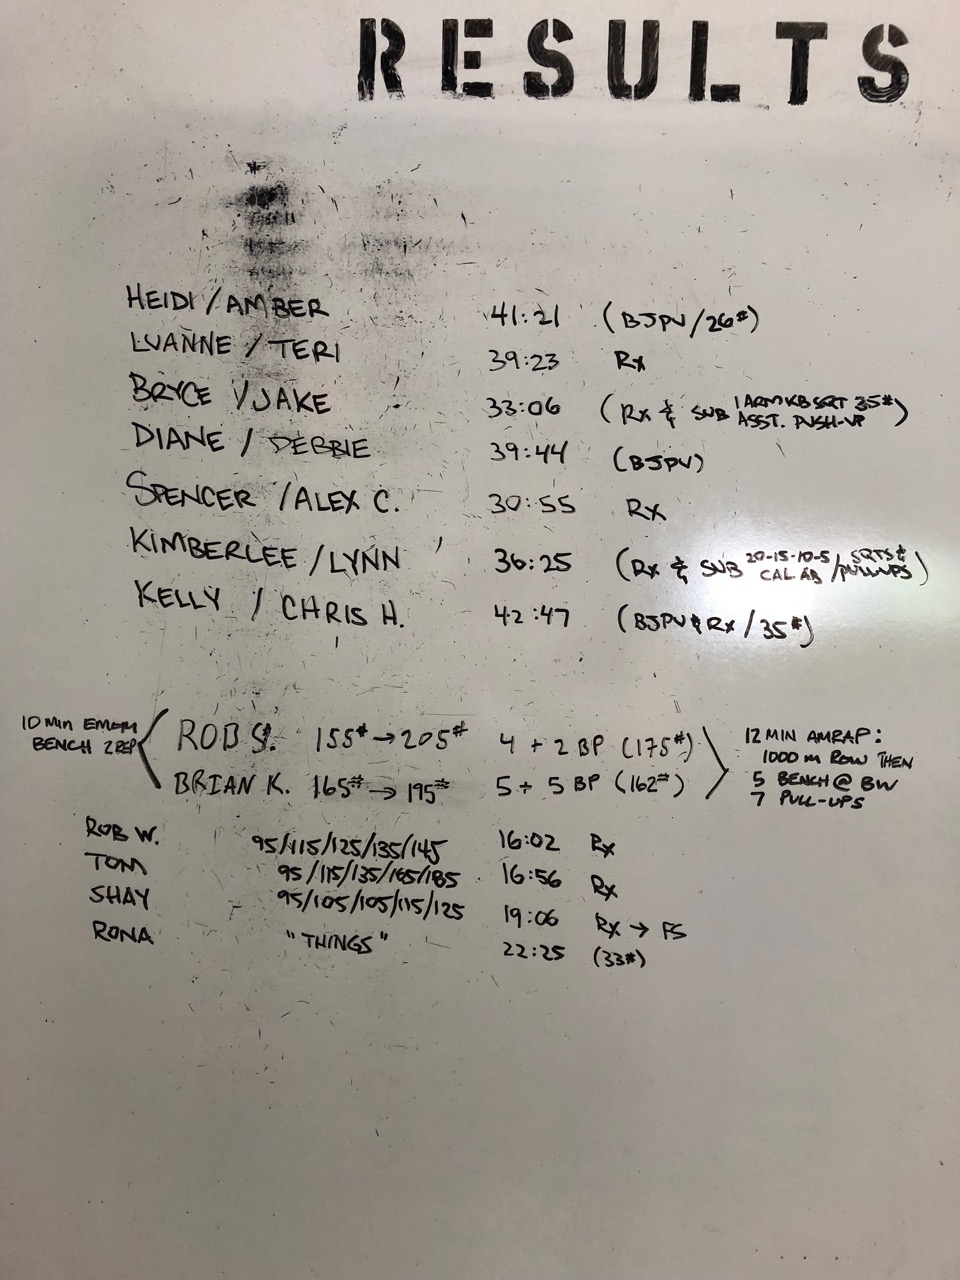 RESULTS
HEIDI / AMBER 41:21 (BJPU/26#)
LUANNE / TERI 39:23 Rx
BRYCE / JAKE 33:06 (Rx & SUB 1 ARM KB SQT 35# ASST. PUSH-UP)
DIANE / DEBBIE 39:44 (BJPU)
SPENCER / ALEX C. 30:55 Rx
KIMBERLEE / LYNN 36:25 (Rx & SUB 20-15-10-5 CAL AB / SQTS & PULLUPS)
KELLY / CHRIS H. 42:47 (BJPU & Rx / 35#)
10 MIN EMOM
BENCH 2 REP
ROB S. 155# → 205# 4 + 2 BP (175#)
BRIAN K. 165# → 195# 5 + 5 BP (162#)
12 MIN AMRAP:
1000 m ROW THEN
5 BENCH @ BW
7 PULL-UPS
ROB W. 95/115/125/135/145 16:02 Rx
TOM 95/115/135/165/185 16:56 Rx
SHAY 95/105/105/115/125 19:06 Rx → FS
RONA "THINGS" 22:25 (33#)